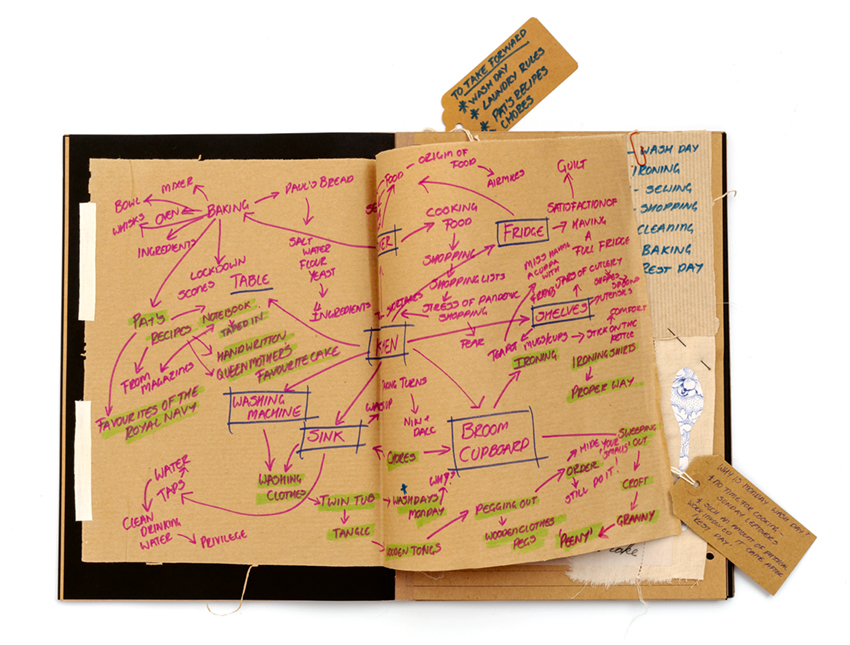 TO TAKE FORWARD
* WASH DAY
* LAUNDRY RULES
* PAT'S RECIPES
* CHORES
- WASH DAY
IRONING
- SEWING
- SHOPPING
CLEANING
BAKING
REST DAY
MIXER
BOWL
WHISKS
OVEN
BAKING
INGREDIENTS
PAUL'S BREAD
SALT
WATER
FLOUR
YEAST
4
INGREDIENTS
LOCKDOWN
SCONES
TABLE
PAT'S
RECIPES
NOTEBOOK
TAPED IN
HANDWRITTEN
QUEEN MOTHER'S
FAVOURITE CAKE
FROM
MAGAZINES
FAVOURITES OF THE
ROYAL NAVY
WASHING
MACHINE
SINK
WASHING
CLOTHES
TWIN TUB
TANGLE
WATER
TAPS
CLEAN
DRINKING
WATER
PRIVILEGE
FOOD
ORIGIN OF
FOOD
AIRMILES
COOKING
FOOD
SHOPPING
SHOPPING LISTS
STRESS OF PANDEMIC
SHOPPING
FEAR
FRIDGE
GUILT
SATISFACTION OF
HAVING
A
FULL FRIDGE
MISS HAVING
A CUPPA
WITH
JARS OF CUTLERY
SHELVES
UTENSILS
COMFORT
TEAPOT
MUGS/CUPS
STICK ON THE
KETTLE
IRONING
IRONING SHIRTS
PROPER WAY
TURNS
CHORES
BROOM
CUPBOARD
WHY?
WASHDAYS
MONDAY
PEGGING OUT
WOODEN CLOTHES
PEGS
ORDER
HIDE YOUR
"SMALLS"
STILL DO IT!
SWEEPING
OUT
CROFT
GRANNY
"PEENY"
TONGS
WHY IS MONDAY WASH DAY?
* NO TIME FOR COOKING,
SUNDAY LEFTOVERS
* SUCH AN AMOUNT OF PHYSICAL
WORK INVOLVED IT CAME AFTER
REST DAY